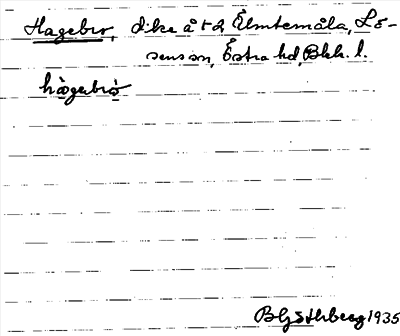 Hagebro, dike å t 2 Elmtemåla, Lö-
sens sn, Östra hd, Blek. l.
hagebro
1935